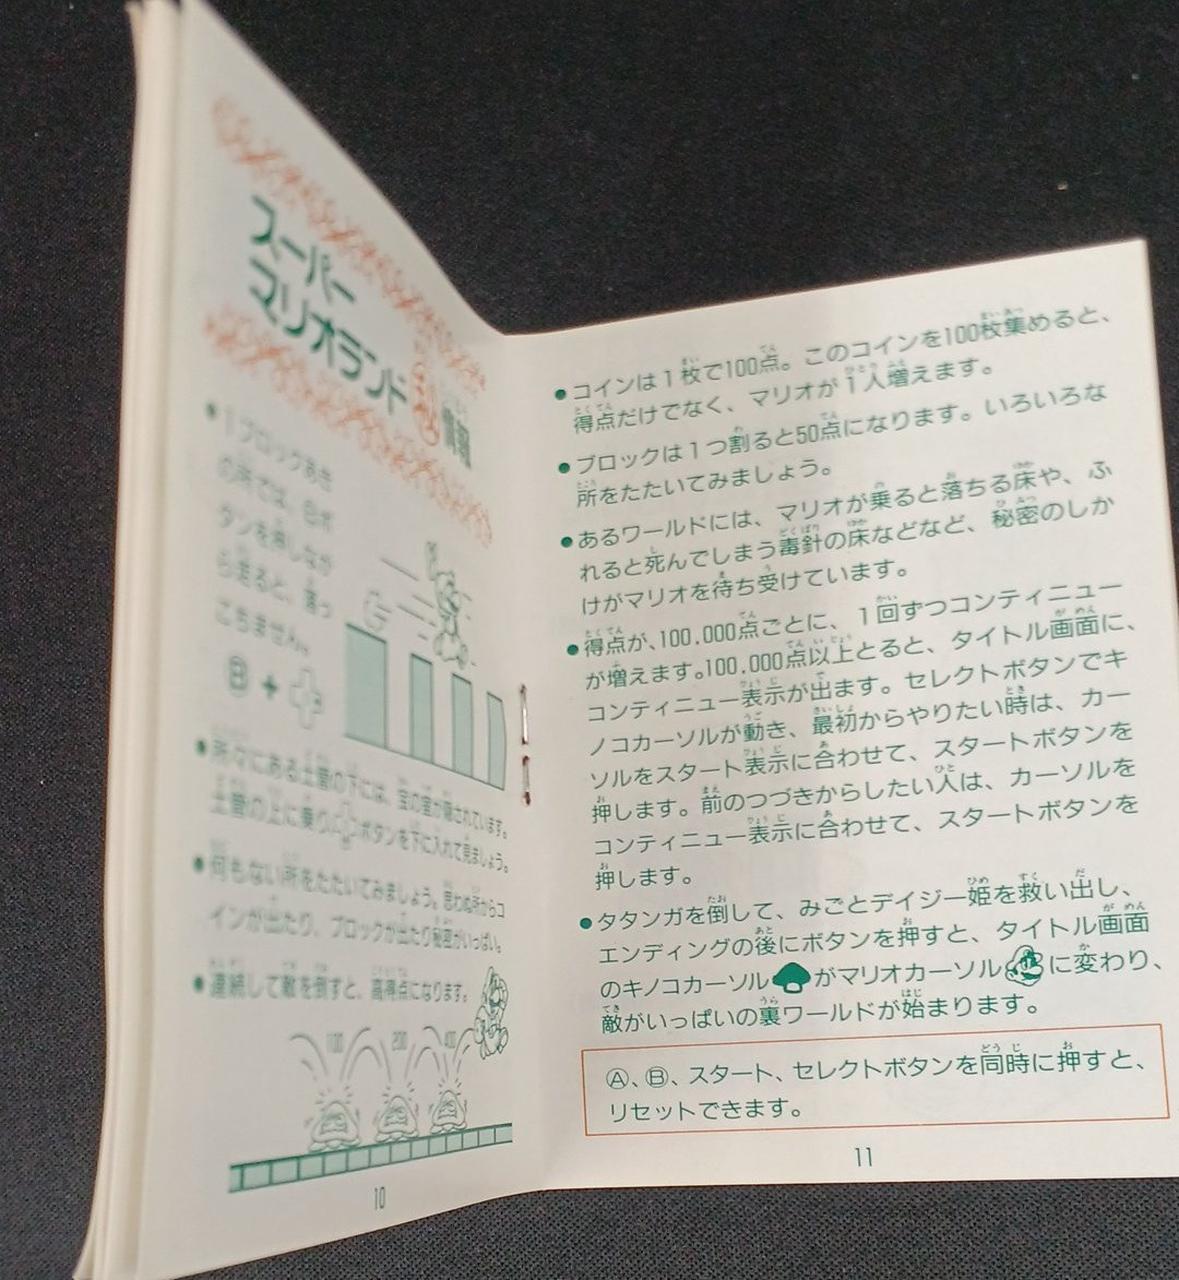 スーパー
マリオランド
㊙情報
●1ブロックあき
の所では、Ⓑボ
タンを押しなが
ら走ると、落っ
こちません。
Ⓑ+
●所々にある土管の下には、宝の室が隠されています。
土管の上に乗りボタンを下に入れて見ましょう。
●何もない所をたたいてみましょう。思わぬ所からコ
インが出たり、ブロックが出たり秘密がいっぱい。
●連続して敵を倒すと、高得点になります。
100 200 400
10
●コインは1枚で100点。このコインを100枚集めると、
得点だけでなく、マリオが1人増えます。
●ブロックは1つ割ると50点になります。いろいろな
所をたたいてみましょう。
●あるワールドには、マリオが乗ると落ちる床や、ふ
れると死んでしまう毒針の床などなど、秘密のしか
けがマリオを待ち受けています。
●得点が、100,000点ごとに、1回ずつコンティニュー
が増えます。100,000点以上とると、タイトル画面に、
コンティニュー表示が出ます。セレクトボタンでキ
ノコカーソルが動き、最初からやりたい時は、カー
ソルをスタート表示に合わせて、スタートボタンを
押します。前のつづきからしたい人は、カーソルを
コンティニュー表示に合わせて、スタートボタンを
押します。
●タタンガを倒して、みごとデイジー姫を救い出し、
エンディングの後にボタンを押すと、タイトル画面
のキノコカーソルがマリオカーソルに変わり、
敵がいっぱいの裏ワールドが始まります。
Ⓐ、Ⓑ、スタート、セレクトボタンを同時に押すと、
リセットできます。
11